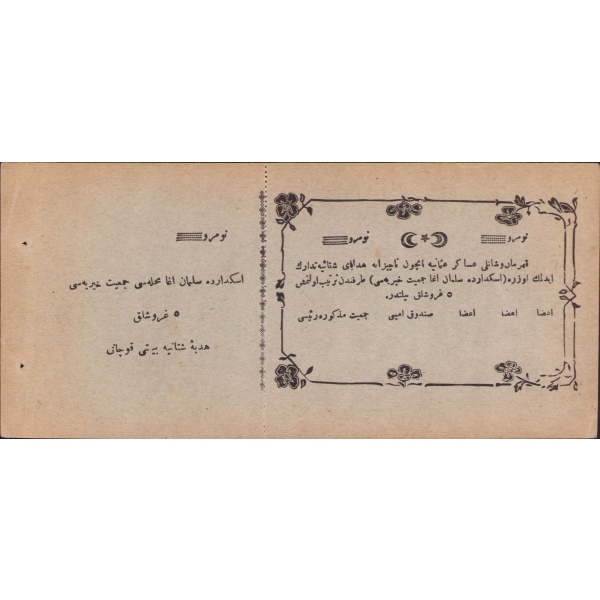 نومرو نومرو
قهرمان و شانلی عساکر عثمانیه ایچون ناچیزانه هدایای شتائیه تدارك
ایدلك اوزره (اسکدارده سلمان اغا جمعیت خیریه‌سی) طرفندن ترتیب اولنمش
٥ غروشلق بیلتدر.
اعضا اعضا اعضا صندوق امینی جمعیت مذکوره رئیسی
نومرو
اسکدارده سلمان اغا محله‌سی جمعیت خیریه‌سی
٥ غروشلق
هدیهٔ شتائیه بیلتی قوچانی